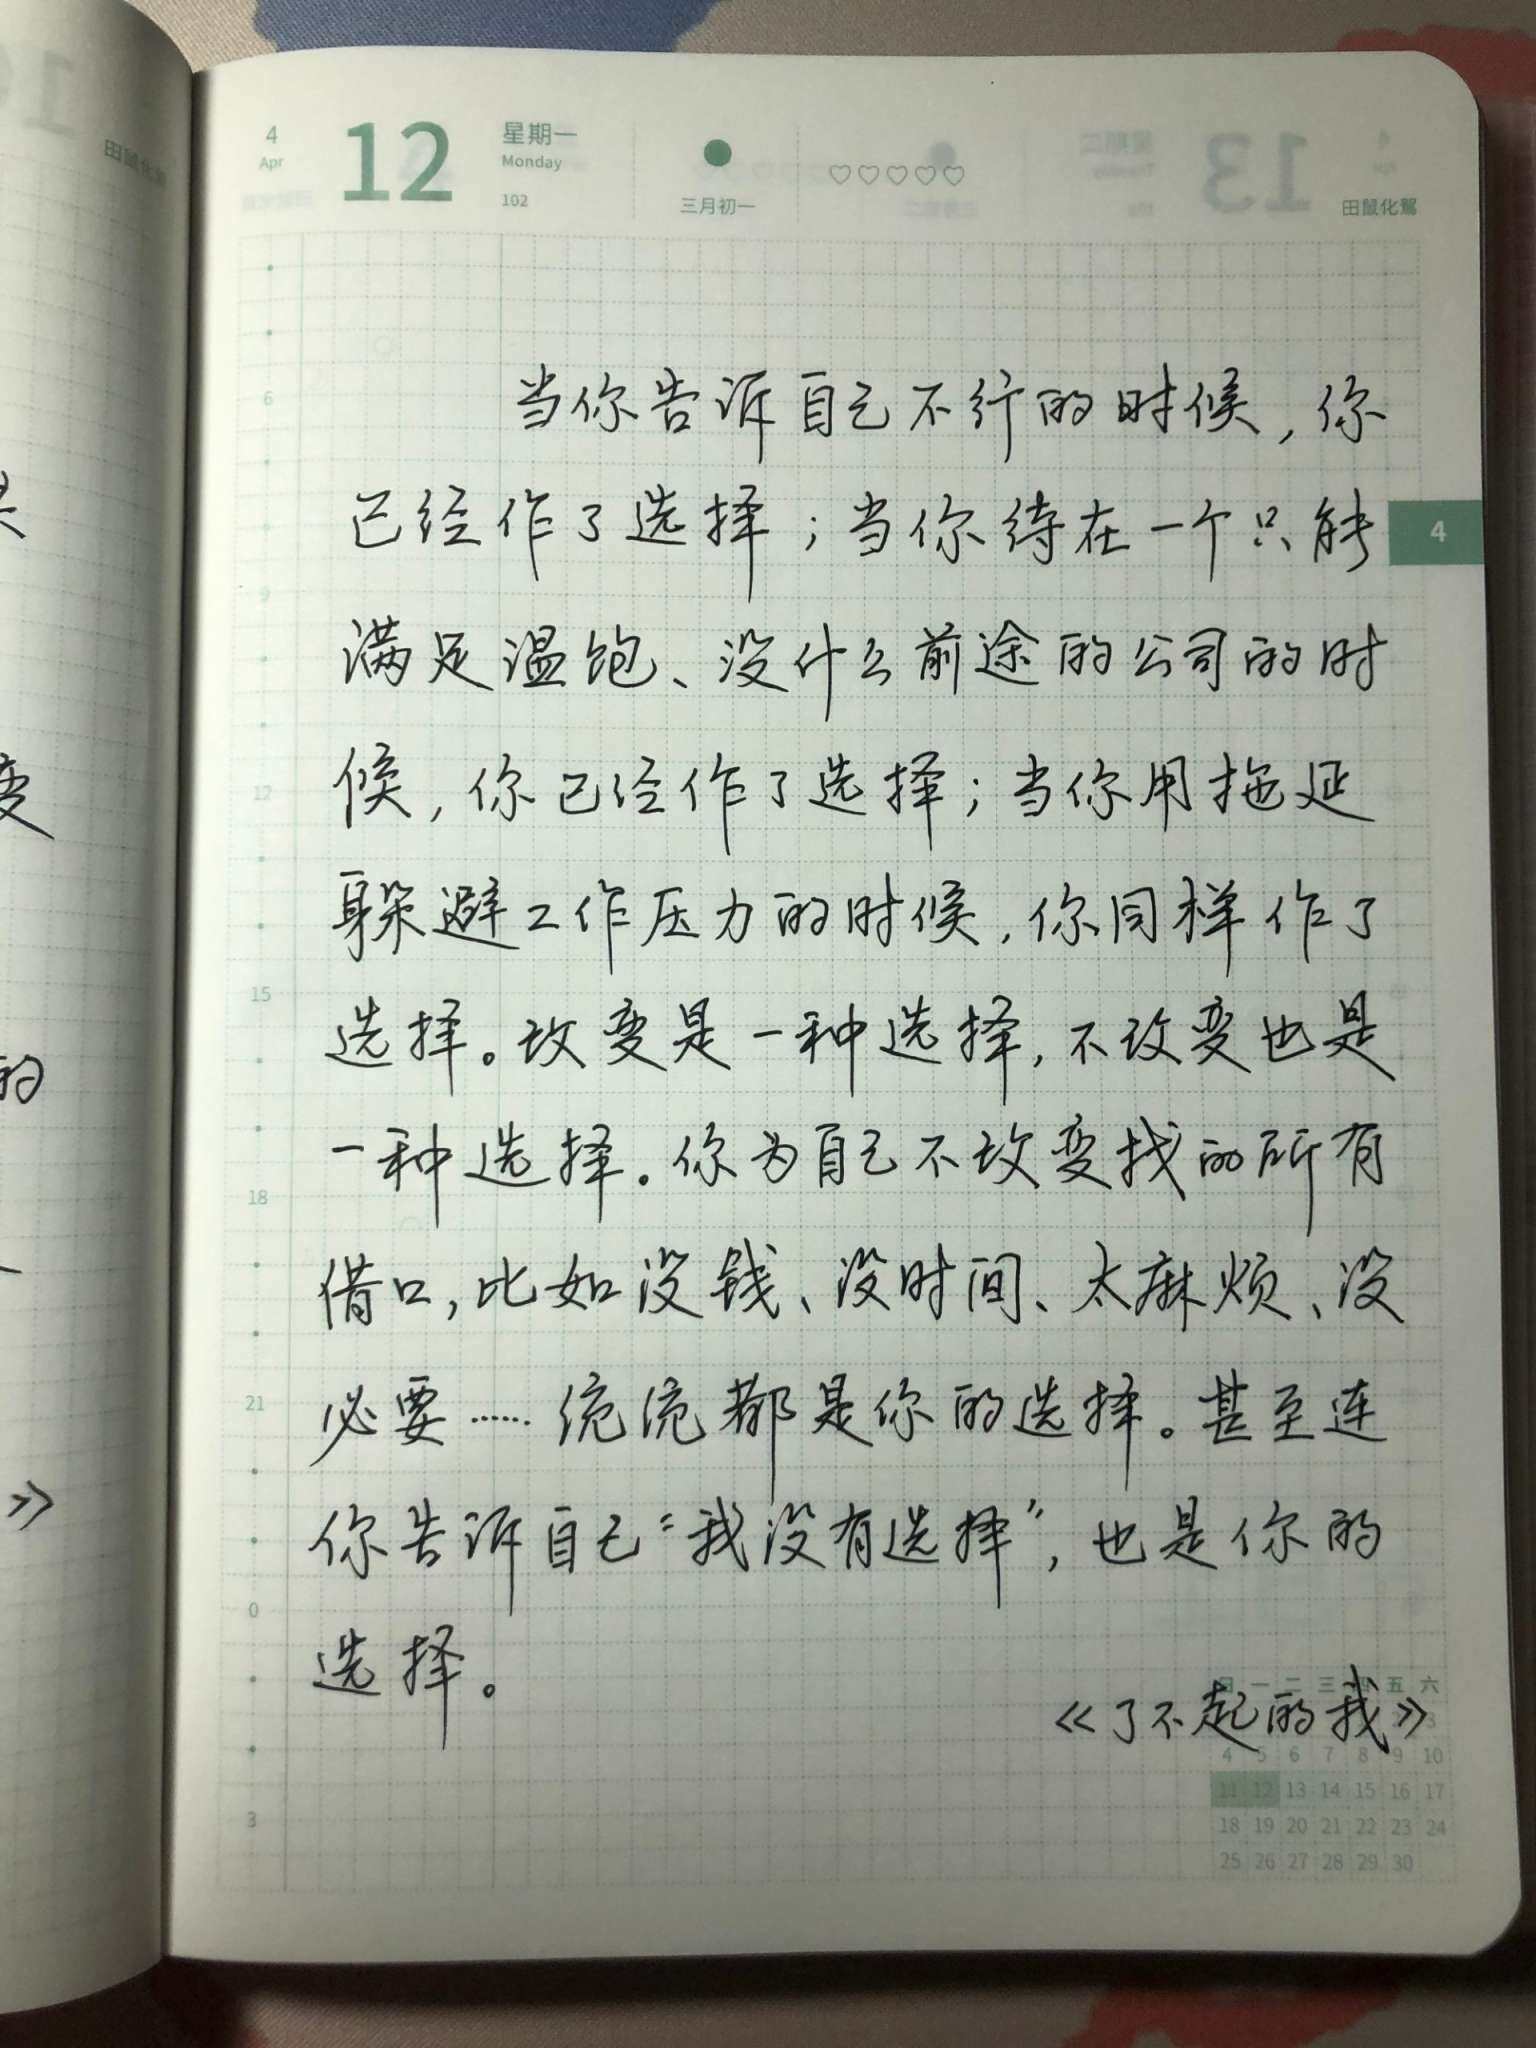 4
Apr
12
星期一
Monday
102
三月初一
田鼠化鴽
4
当你告诉自己不行的时候，你
已经作了选择；当你待在一个只能
满足温饱、没什么前途的公司的时
候，你已经作了选择；当你用拖延
躲避工作压力的时候，你同样作了
选择。改变是一种选择，不改变也是
一种选择。你为自己不改变找的所有
借口，比如没钱、没时间、太麻烦、没
必要……统统都是你的选择。甚至连
你告诉自己“我没有选择”，也是你的
选择。
《了不起的我》
6
9
12
15
18
21
0
3
日 一 二 三 四 五 六
3
4 5 6 7 8 9 10
11 12 13 14 15 16 17
18 19 20 21 22 23 24
25 26 27 28 29 30
变
的
》